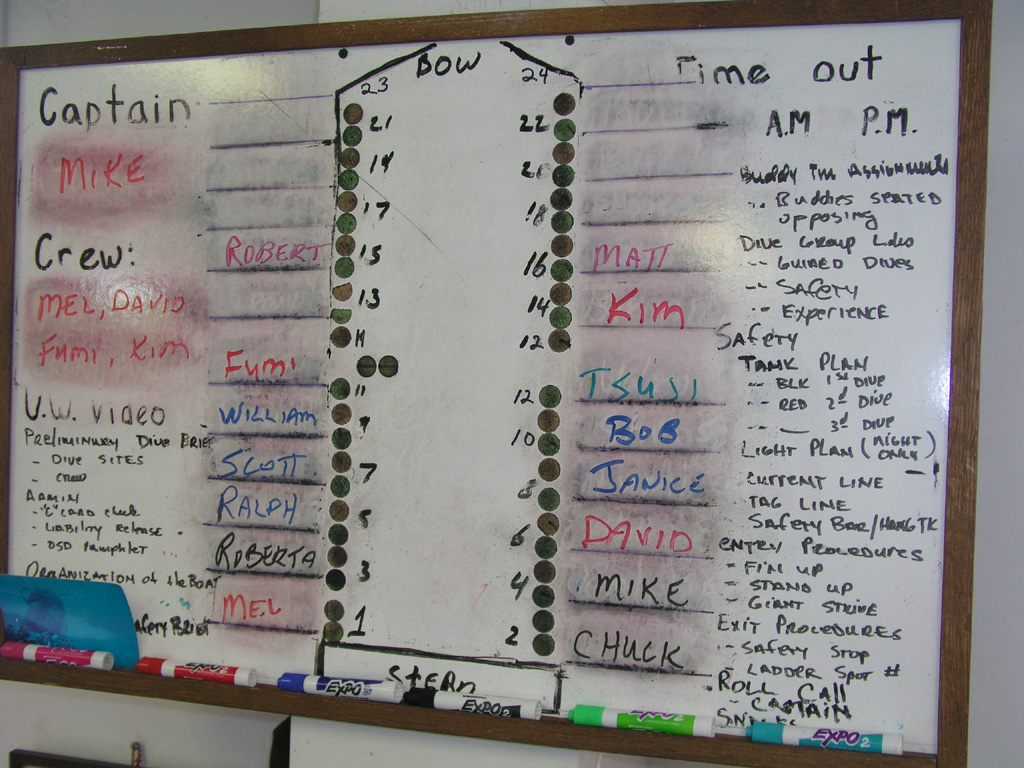 BOW
Captain
MIKE
Crew:
MEL, DAVID
FUMI, KIM
U.W. Video
Preliminary Dive Brief
- Dive Sites
- Crew
Admin
- "C" Card check
- Liability Release
- DSD Pamphlet
Organization of the Boat
Safety Brief
ROBERT
FUMI
WILLIAM
SCOTT
RALPH
ROBERTA
MEL
23
21
19
17
15
13
11
11
9
7
5
3
1
24
22
20
18
16
14
12
12
10
8
6
4
2
STERN
MATT
KIM
TSUJI
BOB
JANICE
DAVID
MIKE
CHUCK
Time out
A.M P.M.
Buddy Tm Assignments
-- Buddies SEATED
opposing
Dive Group
-- GUIDED DIVES
-- SAFETY
-- EXPERIENCE
SAFETY
TANK PLAN
-- BLK 1st DIVE
-- RED 2d DIVE
-- __ 3d DIVE
LIGHT PLAN (NIGHT ONLY)
CURRENT LINE
TAG LINE
SAFETY BAR/HANG TK
ENTRY PROCEDURES
- FIN UP
- STAND UP
- GIANT STRIDE
EXIT PROCEDURES
- SAFETY STOP
- LADDER SPOT #
ROLL CALL
- CAPTAIN
EXPO
EXPO 2
EXPO
EXPO
EXPO 2